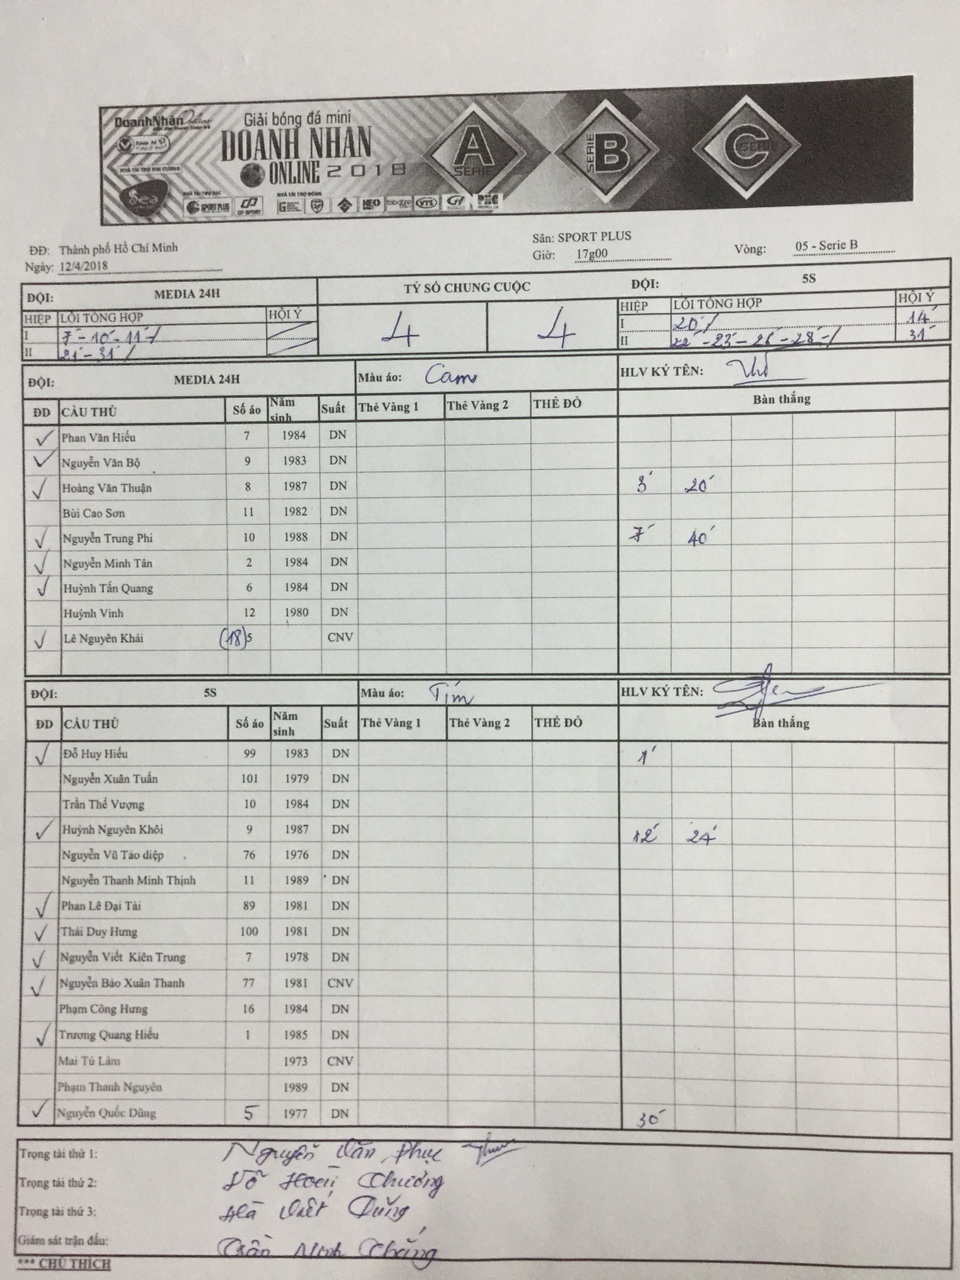 DoanhNhân Online
Giải bóng đá mini
DOANH NHÂN
ONLINE 2018
A
SERIE
SERIE
B
C
Sea
SPORT PLUS
CP SPORT
NEO
VTS
ĐĐ: Thành phố Hồ Chí Minh
Sân: SPORT PLUS
Ngày: 12/4/2018
Giờ: 17g00
Vòng: 05 - Serie B
ĐỘI: MEDIA 24H TỶ SỐ CHUNG CUỘC ĐỘI: 5S
HIỆP LỖI TỔNG HỢP HỘI Ý 4 4 HIỆP LỖI TỔNG HỢP HỘI Ý
I 7' - 10' - 11' / I 20' / 14'
II 21' - 31' / II 22' - 23' - 26' - 28' - / 31'
ĐỘI: MEDIA 24H Màu áo: Cam HLV KÝ TÊN:
ĐD CẦU THỦ Số áo Năm sinh Suất Thẻ Vàng 1 Thẻ Vàng 2 THẺ ĐỎ Bàn thắng
✓ Phan Văn Hiếu 7 1984 DN
✓ Nguyễn Văn Bộ 9 1983 DN
✓ Hoàng Văn Thuận 8 1987 DN 3' 20'
Bùi Cao Sơn 11 1982 DN
✓ Nguyễn Trung Phi 10 1988 DN 7' 40'
✓ Nguyễn Minh Tân 2 1984 DN
✓ Huỳnh Tấn Quang 6 1984 DN
Huỳnh Vinh 12 1980 DN
✓ Lê Nguyên Khải (18) 5 CNV
ĐỘI: 5S Màu áo: Tím HLV KÝ TÊN:
ĐD CẦU THỦ Số áo Năm sinh Suất Thẻ Vàng 1 Thẻ Vàng 2 THẺ ĐỎ Bàn thắng
✓ Đỗ Huy Hiếu 99 1983 DN 1'
Nguyễn Xuân Tuấn 101 1979 DN
Trần Thế Vượng 10 1984 DN
✓ Huỳnh Nguyên Khôi 9 1987 DN 12' 24'
Nguyễn Vũ Tảo diệp 76 1976 DN
Nguyễn Thanh Minh Thịnh 11 1989 DN
✓ Phan Lê Đại Tài 89 1981 DN
✓ Thái Duy Hưng 100 1981 DN
✓ Nguyễn Viết Kiên Trung 7 1978 DN
✓ Nguyễn Bảo Xuân Thanh 77 1981 CNV
Phạm Công Hưng 16 1984 DN
✓ Trương Quang Hiếu 1 1985 DN
Mai Tú Lâm 1973 CNV
Phạm Thanh Nguyên 1989 DN
✓ Nguyễn Quốc Dũng 5 1977 DN 30'
Trọng tài thứ 1: Nguyễn Văn Phục
Trọng tài thứ 2: Chương
Trọng tài thứ 3: Hà Viết Dũng
Giám sát trận đấu: Trần Minh
*** CHÚ THÍCH